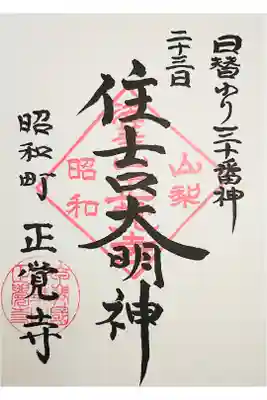 日替わり三十番神
二十三日
住吉大明神
山梨
昭和
昭和町 正覚寺